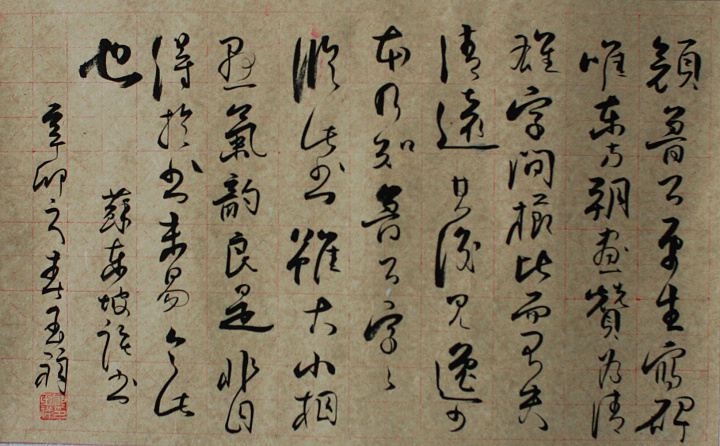 顏魯公平生寫碑
唯東方朔畫贊為清
雄字間櫛比而不失
清遠其後見逸少
本乃知魯公字〻
臨此书雖大小相
懸氣韵良是非自
得於书未易言此
也
蘇東坡語书
辛卯之春玉祥